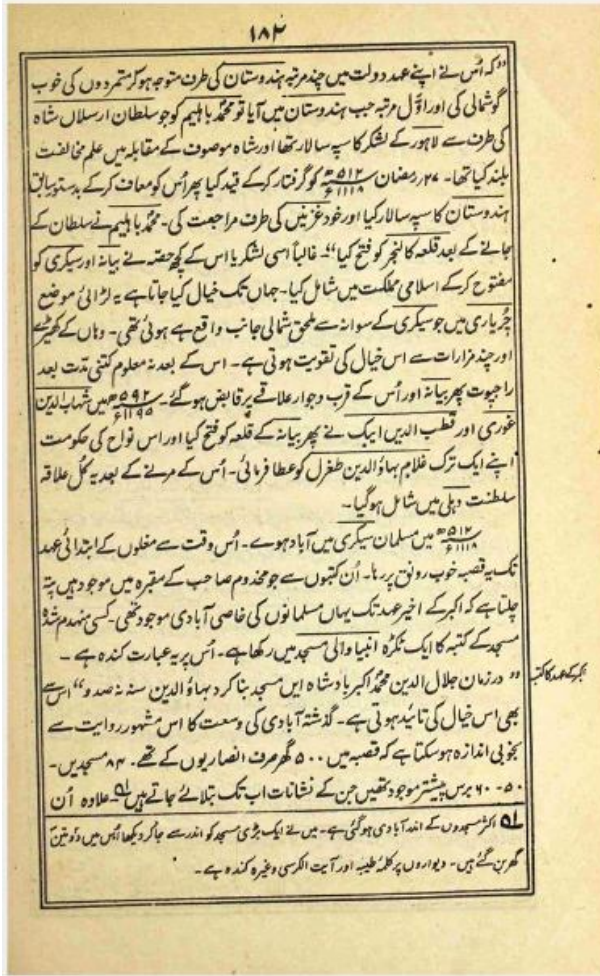 ۱۸۲
"کہ اُس نے اپنے عہد دولت میں چند مرتبہ ہندوستان کی طرف متوجہ ہو کر متمردوں کی خوب
گوشمالی کی اور اوّل مرتبہ جب ہندوستان میں آیا تو محمدؐ باہلیم کو جو سلطان ارسلان شاہ
کی طرف سے لاہور کے لشکر کا سپہ سالار تھا اور شاہ موصوف کے مقابلہ میں علم مخالفت
بلند کیا تھا۔ ۲۷ رمضان ۵۱۲ھ ۱۱۱۸ء کو گرفتار کر کے قید کیا پھر اُس کو معاف کر کے بدستور سابق
ہندوستان کا سپہ سالار کیا اور خود غزنیں کی طرف مراجعت کی۔ محمدؐ باہلیم نے سلطان کے
جانے کے بعد قلعہ کالنجر کو فتح کیا"۔ غالباً اسی لشکر یا اس کے کچھ حصّہ نے بیانہ اور سیکری کو
مفتوح کر کے اسلامی مملکت میں شامل کیا۔ جہاں تک خیال کیا جاتا ہے یہ لڑائی موضع
چُریاری میں جو سیکری کے سوانہ سے ملحق شمالی جانب واقع ہے ہوئی تھی۔ وہاں کے کھیڑے
اور چند مزارات سے اس خیال کی تقویت ہوتی ہے۔ اس کے بعد نہ معلوم کتنی مدت بعد
راجپوت پھر بیانہ اور اُس کے قرب وجوار علاقے پر قابض ہو گئے۔ ۵۹۲ھ ۱۱۹۵ء میں شہاب الدین
غوری اور قطب الدیں ایبک نے پھر بیانہ کے قلعہ کو فتح کیا اور اس نواح کی حکومت
اپنے ایک ترک غلام بہاؤ الدین طغرل کو عطا فرمائی۔ اُس کے مرنے کے بعد یہ کُل علاقہ
سلطنت دہلی میں شامل ہو گیا۔
۵۱۲ھ ۱۱۱۸ء میں مسلمان سیکری میں آباد ہوے۔ اُس وقت سے مغلوں کے ابتدائی عہد
تک یہ قصبہ خوب رونق پر رہا۔ اُن کتبوں سے جو مخدوم صاحب کے مقبرہ میں موجود ہیں پتہ
چلتا ہے کہ اکبر کے اخیر عہد تک یہاں مسلمانوں کی خاصی آبادی موجود تھی۔ کسی منہدم شدہ
مسجد کے کتبہ کا ایک ٹکڑہ انبیا والی مسجد میں رکھا ہے۔ اُس پر یہ عبارت کندہ ہے ۔
"در زمان جلال الدین محمدؐ اکبر بادشاہ ایں مسجد بنا کرد بہاؤ الدین سنہ نہ صد و" اس سے
اکبر کے عہد کا کتبہ
بھی اس خیال کی تائید ہوتی ہے۔ گذشتہ آبادی کی وسعت کا اس مشہور روایت سے
بخوبی اندازہ ہو سکتا ہے کہ قصبہ میں ۵۰۰ گھر صرف انصاریوں کے تھے۔ ۸۴ مسجدیں۔
۵۰۔ ۶۰ برس پیشتر موجود تھیں جن کے نشانات اب تک بتلائے جاتے ہیں۔ علاوہ اُن
اکثر مسجدوں کے اندر آبادی ہو گئی ہے۔ میں نے ایک بڑی مسجد کو اندر سے جا کر دیکھا اُس میں دو تین
گھر بن گئے ہیں۔ دیواروں پر کلمۂ طیبہ اور آیت الکرسی وغیرہ کندہ ہے۔